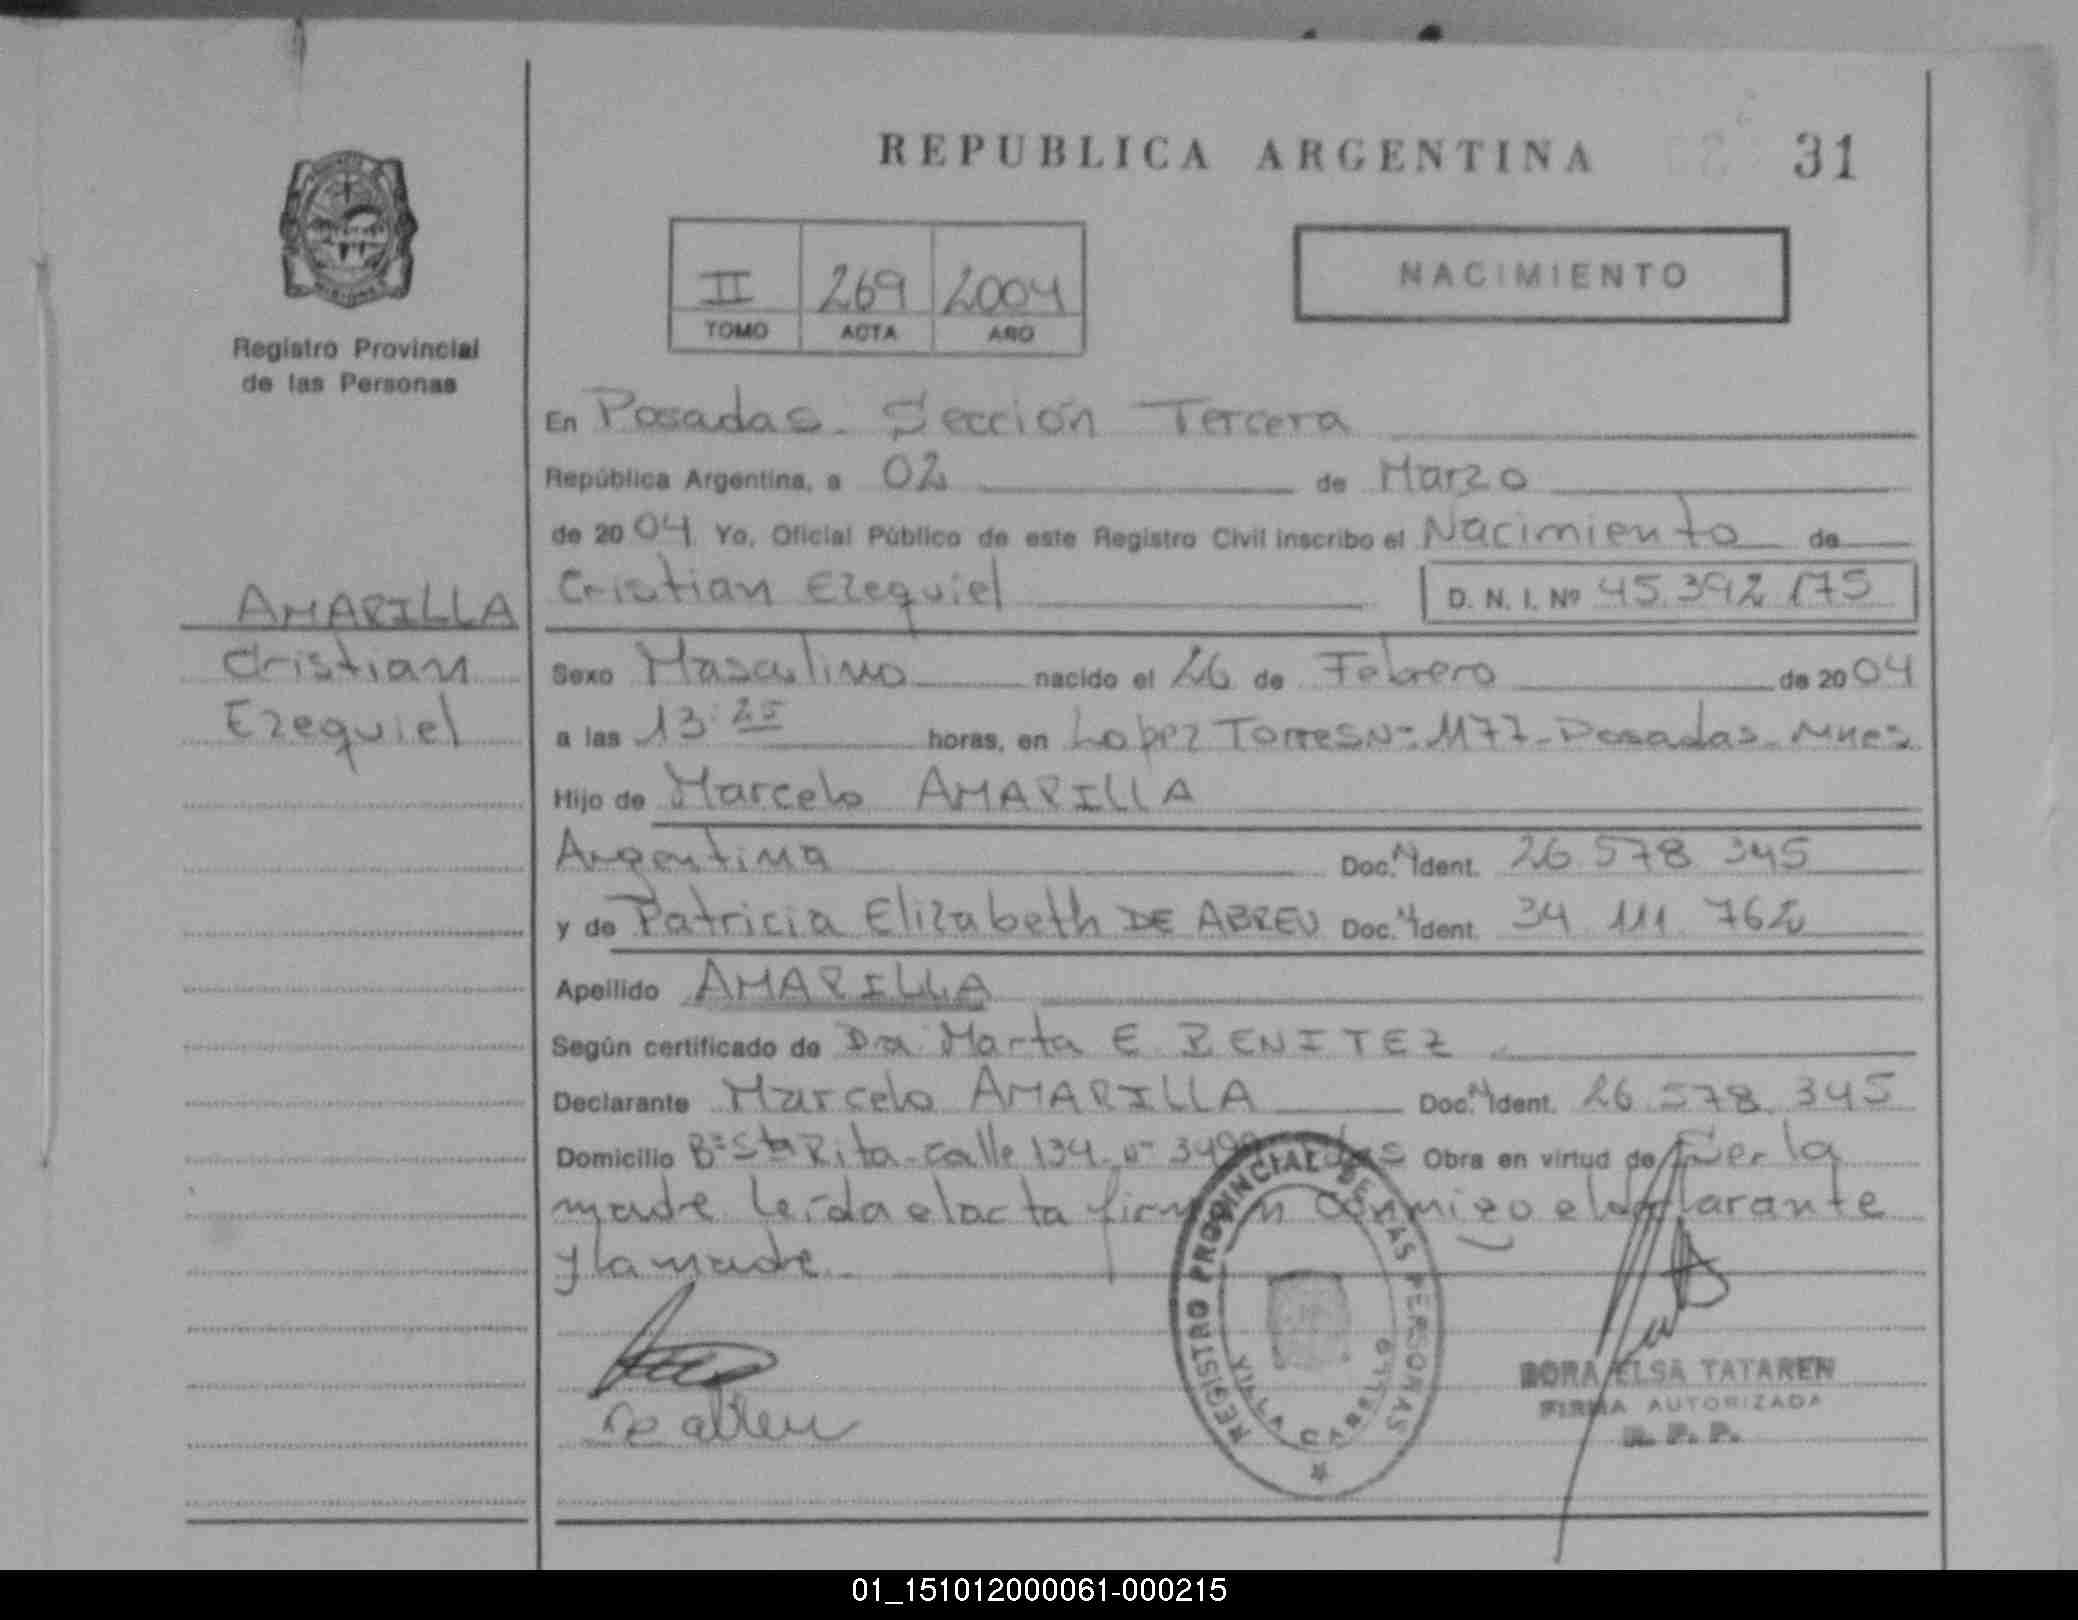 REPUBLICA ARGENTINA 31
Registro Provincial
de las Personas
II 269 2004
TOMO ACTA AÑO
NACIMIENTO
En Posadas. Sección Tercera
República Argentina, a 02 de Marzo
de 2004 Yo, Oficial Público de este Registro Civil inscribo el Nacimiento de
Cristian Ezequiel D. N. I. Nº 45.392.175
AMARILLA
Cristian
Ezequiel
Sexo Masculino nacido el 26 de Febrero de 2004
a las 13:25 horas, en Lopez Torres Nº 1177 - Posadas - Mnes
Hijo de Marcelo AMARILLA
Argentina Doc. N Ident. 26.578.345
y de Patricia Elizabeth DE ABREU Doc. N Ident. 34.111.762
Apellido AMARILLA
Según certificado de Dra Marta E. BENITEZ
Declarante Marcelo AMARILLA Doc. N Ident. 26.578.345
Domicilio Bº Sta Rita - calle 134 - Obra en virtud de Ser la
madre leída el acta firman conmigo el declarante
y la madre
De abreu
REGISTRO PROVINCIAL DE LAS PERSONAS
VILLA CABELLO
DORA ELSA TATAREN
FIRMA AUTORIZADA
R. P. P.
01_151012000061-000215